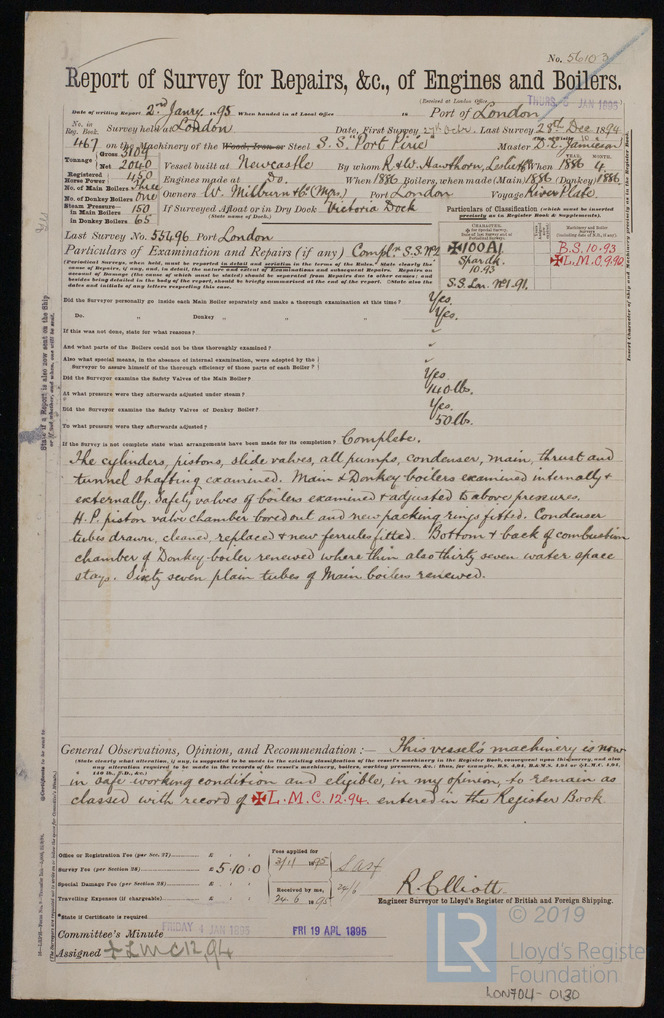 No. 56103
Report of Survey for Repairs, &c., of Engines and Boilers.
(Received at London Office THURS. 3 JAN 1895)
Date of writing Report 2nd Janry 1895 When handed in at Local Office 18 Port of London
No. in Reg. Book. Survey held at London Date, First Survey 27th Octr. Last Survey 28th Dec 1894
467 on the Machinery of the Wood, Iron or Steel S.S. "Port Pirie" Master D. E. Jamieson
Tonnage Gross 3109 Net 2040 Vessel built at Newcastle By whom R & W. Hawthorn, Leslie & Co When 1886 4
Registered Horse Power 450 Engines made at Do. When 1886 Boilers, when made (Main) 1886 (Donkey) 1886
No. of Main Boilers Three
No. of Donkey Boilers One Owners W. Milburn & Co (Mgrs.) Port London Voyage River Plate.
Steam Pressure in Main Boilers 150 If Surveyed Afloat or in Dry Dock Victoria Dock
in Donkey Boilers 65 (State name of Dock.)
Particulars of Classification (which must be inserted precisely as in Register Book & Supplements).
Last Survey No. 55496 Port London
Particulars of Examination and Repairs (if any) Compln. S.S. No 2
✠100A1
Spar dk.
10.93
S.S. Lon. No 1. 91.
B.S. 10.93
✠L.M.C. 9.90
Did the Surveyor personally go inside each Main Boiler separately and make a thorough examination at this time? Yes.
Do. " Donkey " " " Yes.
If this was not done, state for what reasons? "
And what parts of the Boilers could not be thus thoroughly examined? "
Also what special means, in the absence of internal examination, were adopted by the Surveyor to assure himself of the thorough efficiency of those parts of each Boiler? "
Did the Surveyor examine the Safety Valves of the Main Boiler? Yes
At what pressure were they afterwards adjusted under steam? 140 lbs.
Did the Surveyor examine the Safety Valves of Donkey Boiler? Yes.
To what pressure were they afterwards adjusted? 50 lbs.
If the Survey is not complete state what arrangements have been made for its completion? Complete.
The cylinders, pistons, slide valves, all pumps, condenser, main, thrust and
tunnel shafting examined. Main & Donkey boilers examined internally &
externally. Safety valves of boilers examined & adjusted to above pressures.
H.P. piston valve chamber bored out and new packing rings fitted. Condenser
tubes drawn, cleaned, replaced & new ferrules fitted. Bottom & back of combustion
chamber of Donkey boiler renewed where thin also thirty seven water space
stays. Sixty seven plain tubes of Main boilers renewed.
General Observations, Opinion, and Recommendation:— This vessel's machinery is now
in safe working condition and eligible, in my opinion, to remain as
classed with record of ✠L.M.C. 12.94. entered in the Register Book
Office or Registration Fee (per Sec. 27) £
Survey Fee (per Section 28) £ 5.10.0
Special Damage Fee (per Section 28) £
Travelling Expenses (if chargeable) £
Fees applied for 3/1/1895
Received by me, 24.6 1895
R. Elliott
Engineer Surveyor to Lloyd's Register of British and Foreign Shipping.
*State if Certificate is required
Committee's Minute FRIDAY 4 JAN 1895 FRI 19 APL 1895
Assigned + LMC 12,94
© 2019
LR
Lloyd's Register
Foundation
LON704-0130